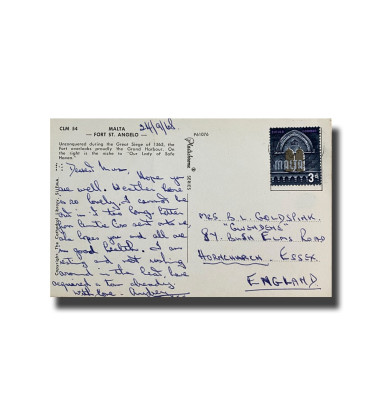 CLM 54
MALTA
— FORT ST. ANGELO —
Unconquered during the Great Siege of 1565, the
Fort overlooks proudly the Grand Harbour. On
the right is the niche to "Our Lady of Safe
Haven."
24/9/68
PA1076
Plastichrome ®
SERIES
MALTA
3d
Dear Mum,
Hope you
are well. Weather here
is so lovely, I cannot be
out in it too long.
Auntie
hopes you and all are
in good health. I am
resting and not rushing
around in the heat, have
acquired a tan already
with love.
MRS B. L. GOLDSPINK.
"GWENDENE"
84. BUSH ELMS ROAD
HORNCHURCH. ESSEX.
ENGLAND.